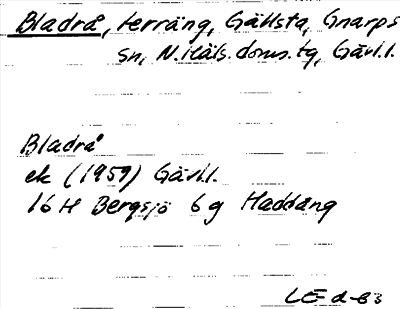 Bladrå, terräng, Gällsta, Gnarps
sn, N.Häls.doms.tg, Gävl.l.
Bladrå
ek (1959) Gävl.l.
16 H Bergsjö 6 g Haddäng